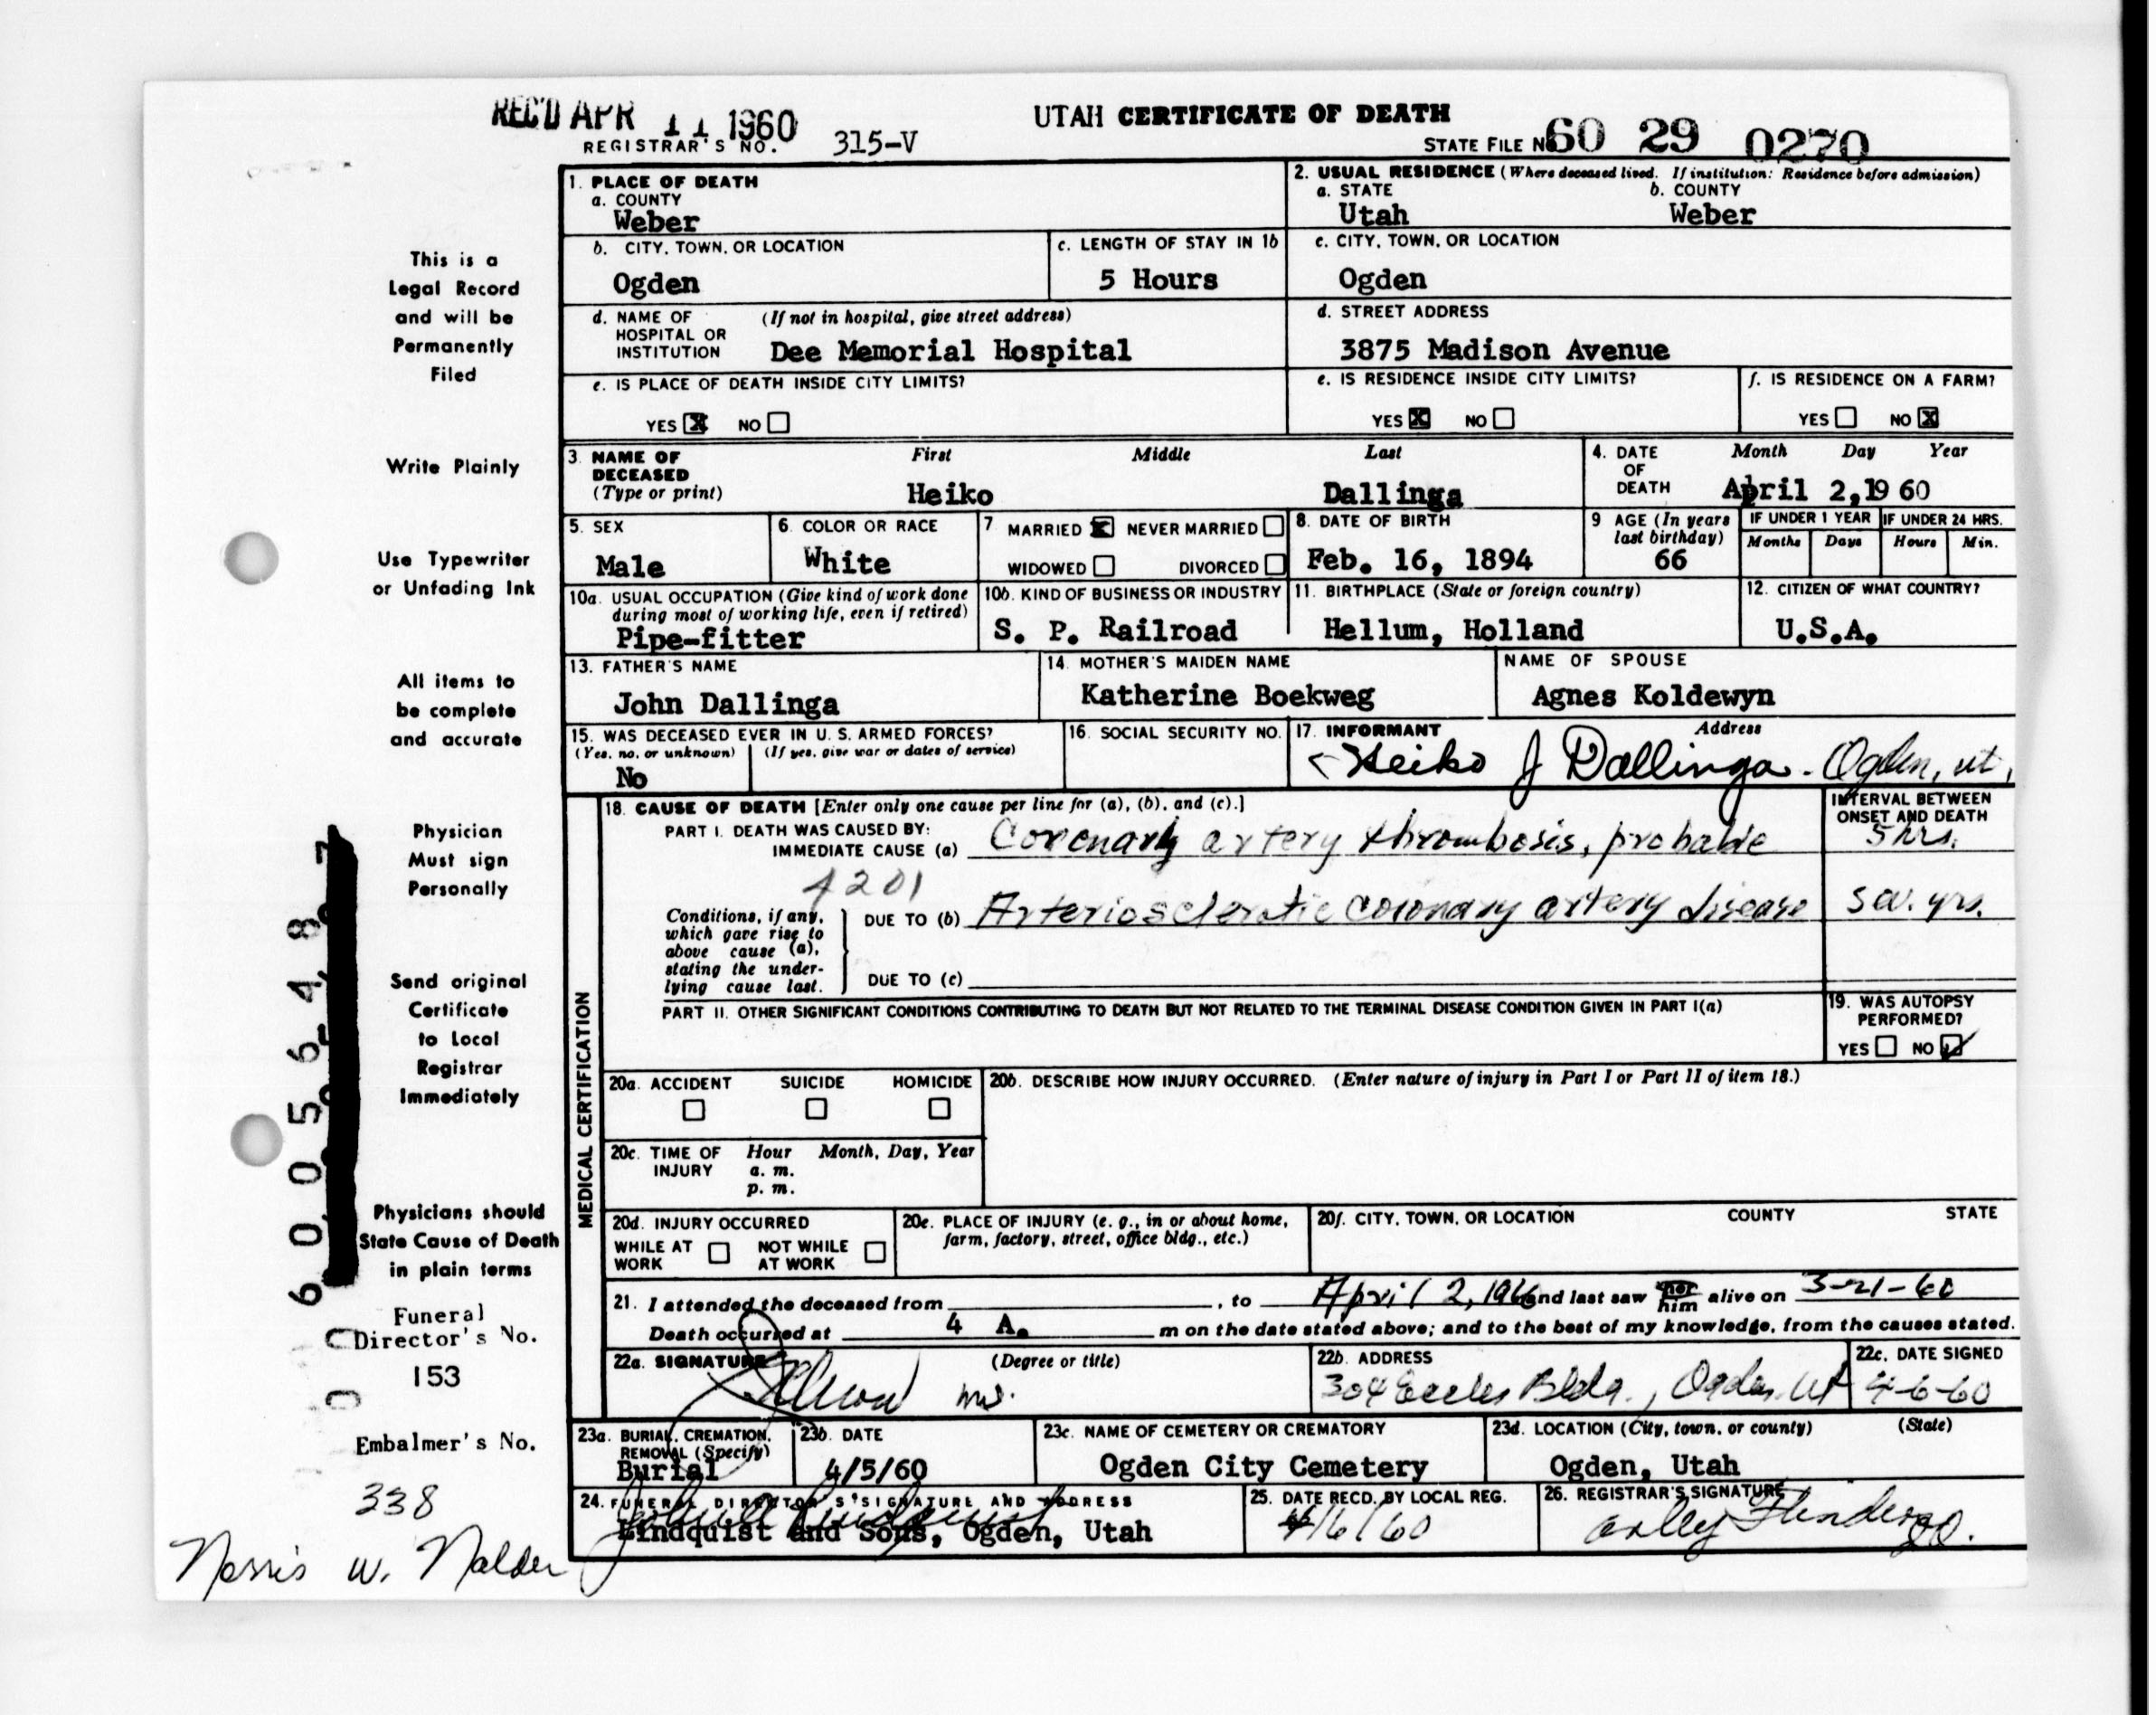 REC'D APR 11 1960
UTAH CERTIFICATE OF DEATH
REGISTRAR'S NO. 315-V
STATE FILE NO. 60 29 0270
1. PLACE OF DEATH
a. COUNTY
Weber
2. USUAL RESIDENCE (Where deceased lived. If institution: Residence before admission)
a. STATE b. COUNTY
Utah Weber
b. CITY, TOWN, OR LOCATION
Ogden
c. LENGTH OF STAY IN 1b
5 Hours
c. CITY, TOWN, OR LOCATION
Ogden
d. NAME OF (If not in hospital, give street address)
HOSPITAL OR
INSTITUTION Dee Memorial Hospital
d. STREET ADDRESS
3875 Madison Avenue
e. IS PLACE OF DEATH INSIDE CITY LIMITS?
YES X NO
e. IS RESIDENCE INSIDE CITY LIMITS?
YES X NO
f. IS RESIDENCE ON A FARM?
YES NO X
3. NAME OF First Middle Last
DECEASED
(Type or print) Heiko Dallinga
4. DATE Month Day Year
OF
DEATH April 2, 19 60
5. SEX
Male
6. COLOR OR RACE
White
7 MARRIED X NEVER MARRIED
WIDOWED DIVORCED
8. DATE OF BIRTH
Feb. 16, 1894
9 AGE (In years
last birthday)
66
IF UNDER 1 YEAR IF UNDER 24 HRS.
Months Days Hours Min.
10a. USUAL OCCUPATION (Give kind of work done
during most of working life, even if retired)
Pipe-fitter
10b. KIND OF BUSINESS OR INDUSTRY
S. P. Railroad
11. BIRTHPLACE (State or foreign country)
Hellum, Holland
12. CITIZEN OF WHAT COUNTRY?
U.S.A.
13. FATHER'S NAME
John Dallinga
14. MOTHER'S MAIDEN NAME
Katherine Boekweg
NAME OF SPOUSE
Agnes Koldewyn
15. WAS DECEASED EVER IN U. S. ARMED FORCES?
(Yes, no, or unknown) (If yes, give war or dates of service)
No
16. SOCIAL SECURITY NO.
17. INFORMANT Address
Heiko J Dallinga. Ogden, ut.
MEDICAL CERTIFICATION
18. CAUSE OF DEATH [Enter only one cause per line for (a), (b), and (c).]
INTERVAL BETWEEN
ONSET AND DEATH
PART I. DEATH WAS CAUSED BY:
IMMEDIATE CAUSE (a) Coronary artery thrombosis, probable 5 hrs.
4201
Conditions, if any,
which gave rise to
above cause (a),
stating the under-
lying cause last.
DUE TO (b) Arteriosclerotic coronary artery disease sev. yrs.
DUE TO (c)
PART II. OTHER SIGNIFICANT CONDITIONS CONTRIBUTING TO DEATH BUT NOT RELATED TO THE TERMINAL DISEASE CONDITION GIVEN IN PART I(a)
19. WAS AUTOPSY
PERFORMED?
YES NO
20a. ACCIDENT SUICIDE HOMICIDE
20b. DESCRIBE HOW INJURY OCCURRED. (Enter nature of injury in Part I or Part II of item 18.)
20c. TIME OF Hour Month, Day, Year
INJURY a. m.
p. m.
20d. INJURY OCCURRED
WHILE AT NOT WHILE
WORK AT WORK
20e. PLACE OF INJURY (e. g., in or about home,
farm, factory, street, office bldg., etc.)
20f. CITY, TOWN, OR LOCATION COUNTY STATE
21. I attended the deceased from , to April 2, 1960 and last saw her him alive on 3-21-60
Death occurred at 4 A. m on the date stated above; and to the best of my knowledge, from the causes stated.
22a. SIGNATURE (Degree or title)
22b. ADDRESS
304 Eccles Bldg., Ogden Ut
22c. DATE SIGNED
4-6-60
23a. BURIAL, CREMATION,
REMOVAL (Specify)
Burial
23b. DATE
4/5/60
23c. NAME OF CEMETERY OR CREMATORY
Ogden City Cemetery
23d. LOCATION (City, town, or county) (State)
Ogden, Utah
24. FUNERAL DIRECTOR'S SIGNATURE AND ADDRESS
Lindquist and Sons, Ogden, Utah
25. DATE RECD. BY LOCAL REG.
4/6/60
26. REGISTRAR'S SIGNATURE
This is a
Legal Record
and will be
Permanently
Filed
Write Plainly
Use Typewriter
or Unfading Ink
All items to
be complete
and accurate
Physician
Must sign
Personally
Send original
Certificate
to Local
Registrar
Immediately
Physicians should
State Cause of Death
in plain terms
Funeral
Director's No.
153
Embalmer's No.
338
Norris W. Nalder